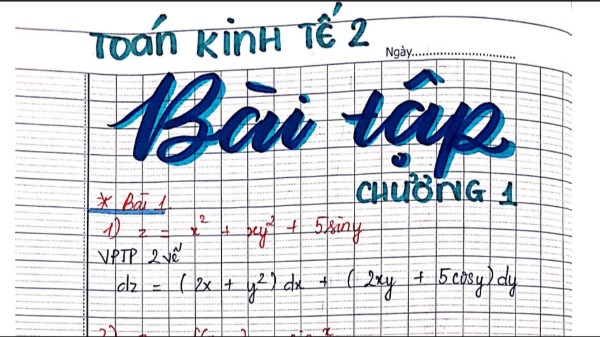 TOÁN KINH TẾ 2
Ngày....................................
Bài tập
CHƯƠNG 1
* Bài 1
1) z = x² + xy² + 5siny
VPTP 2 vế
dz = (2x + y²) dx + (2xy + 5cosy) dy